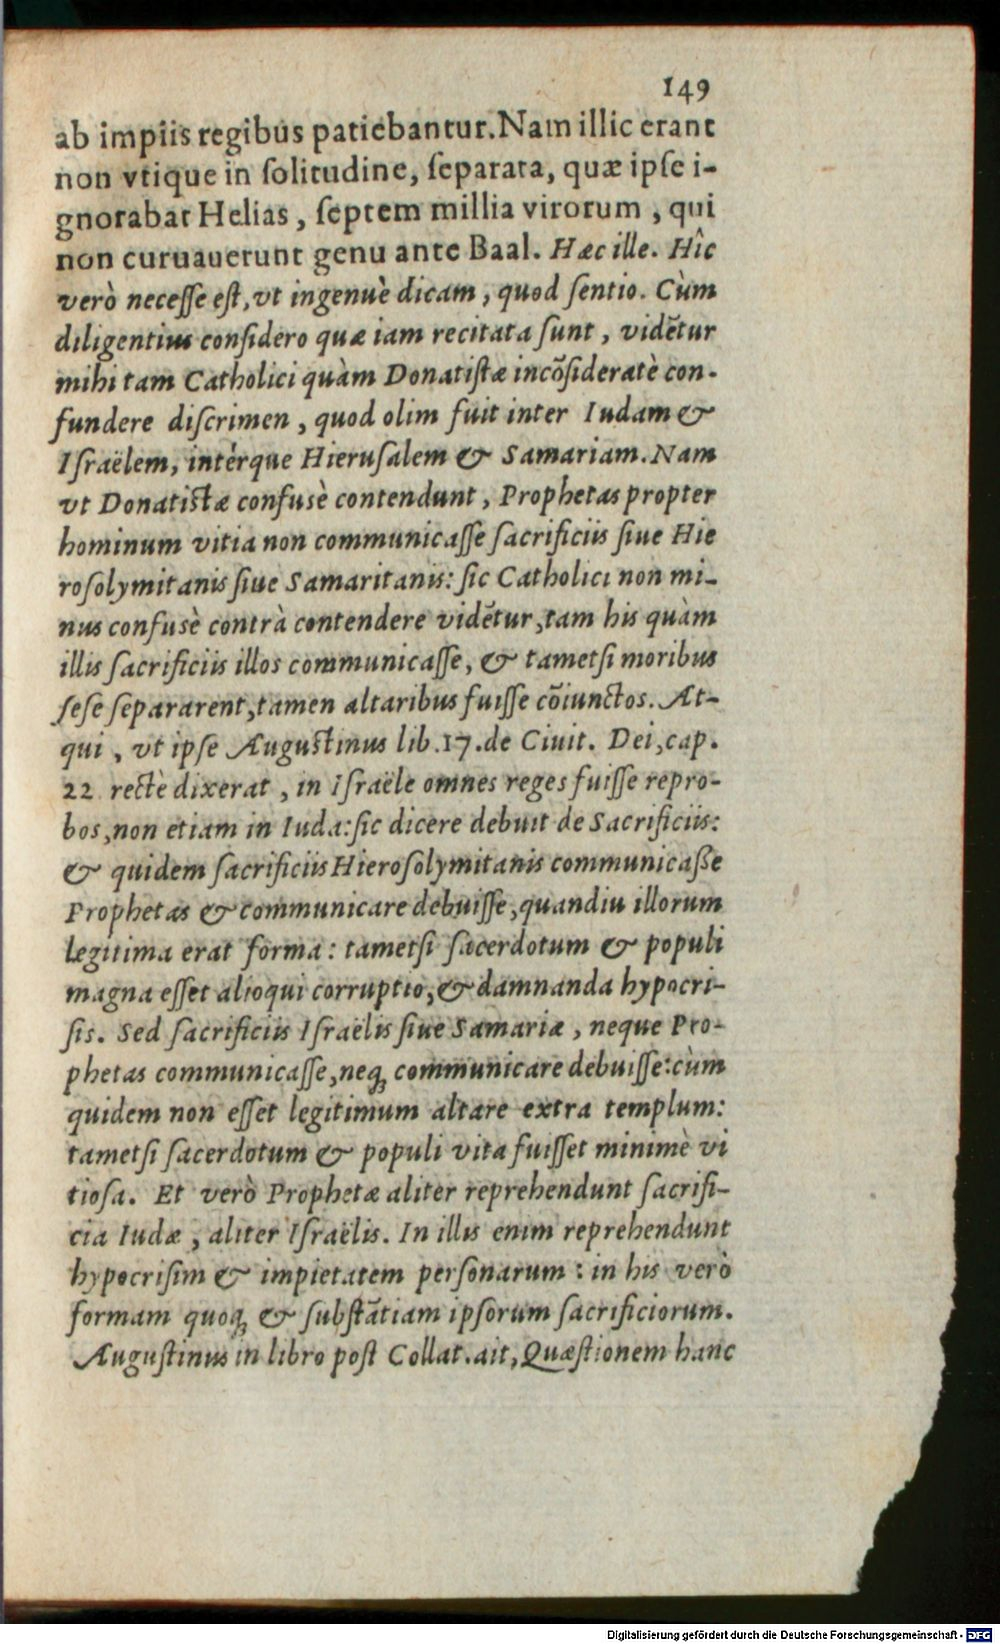 149
ab impiis regibus patiebantur. Nam illic erant
non vtique in ſolitudine, ſeparata, quæ ipſe i-
gnorabat Helias, ſeptem millia virorum, qui
non curuauerunt genu ante Baal. Hæc ille. Hîc
verò neceſſe eſt, vt ingenuè dicam, quod ſentio. Cùm
diligentius conſidero quæ iam recitata ſunt, vidẽtur
mihi tam Catholici quàm Donatiſtæ incõſideratè con-
fundere diſcrimen, quod olim fuit inter Iudam &
Iſraëlem, intérque Hieruſalem & Samariam. Nam
vt Donatiſtæ confusè contendunt, Prophetas propter
hominum vitia non communicaſſe ſacrificiis ſiue Hie
roſolymitanis ſiue Samaritanis: ſic Catholici non mi-
nus confusè contrà contendere vidẽtur, tam his quàm
illis ſacrificiis illos communicaſſe, & tametſi moribus
ſeſe ſepararent, tamen altaribus fuiſſe cõiunctos. At-
qui, vt ipſe Auguſtinus lib. 17. de Ciuit. Dei, cap.
22 rectè dixerat, in Iſraële omnes reges fuiſſe repro-
bos, non etiam in Iuda: ſic dicere debuit de Sacrificiis:
& quidem ſacrificiis Hieroſolymitanis communicaße
Prophetas & communicare debuiſſe, quandiu illorum
legitima erat forma: tametſi ſacerdotum & populi
magna eſſet alioqui corruptio, & damnanda hypocri-
ſis. Sed ſacrificiis Iſraëlis ſiue Samariæ, neque Pro-
phetas communicaſſe, neq; communicare debuiſſe: cùm
quidem non eſſet legitimum altare extra templum:
tametſi ſacerdotum & populi vita fuiſſet minimè vi
tioſa. Et verò Prophetæ aliter reprehendunt ſacrifi-
cia Iudæ, aliter Iſraëlis. In illis enim reprehendunt
hypocriſim & impietatem perſonarum: in his verò
formam quoq; & ſubſtãtiam ipſorum ſacrificiorum.
Auguſtinus in libro poſt Collat. ait, Quæſtionem hanc
Digitalisierung gefördert durch die Deutsche Forschungsgemeinschaft - DFG